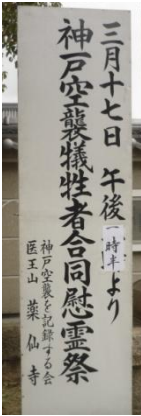 三月十七日　午後一時半より
神戸空襲犠牲者合同慰霊祭
神戸空襲を記録する会
医王山　薬仙寺